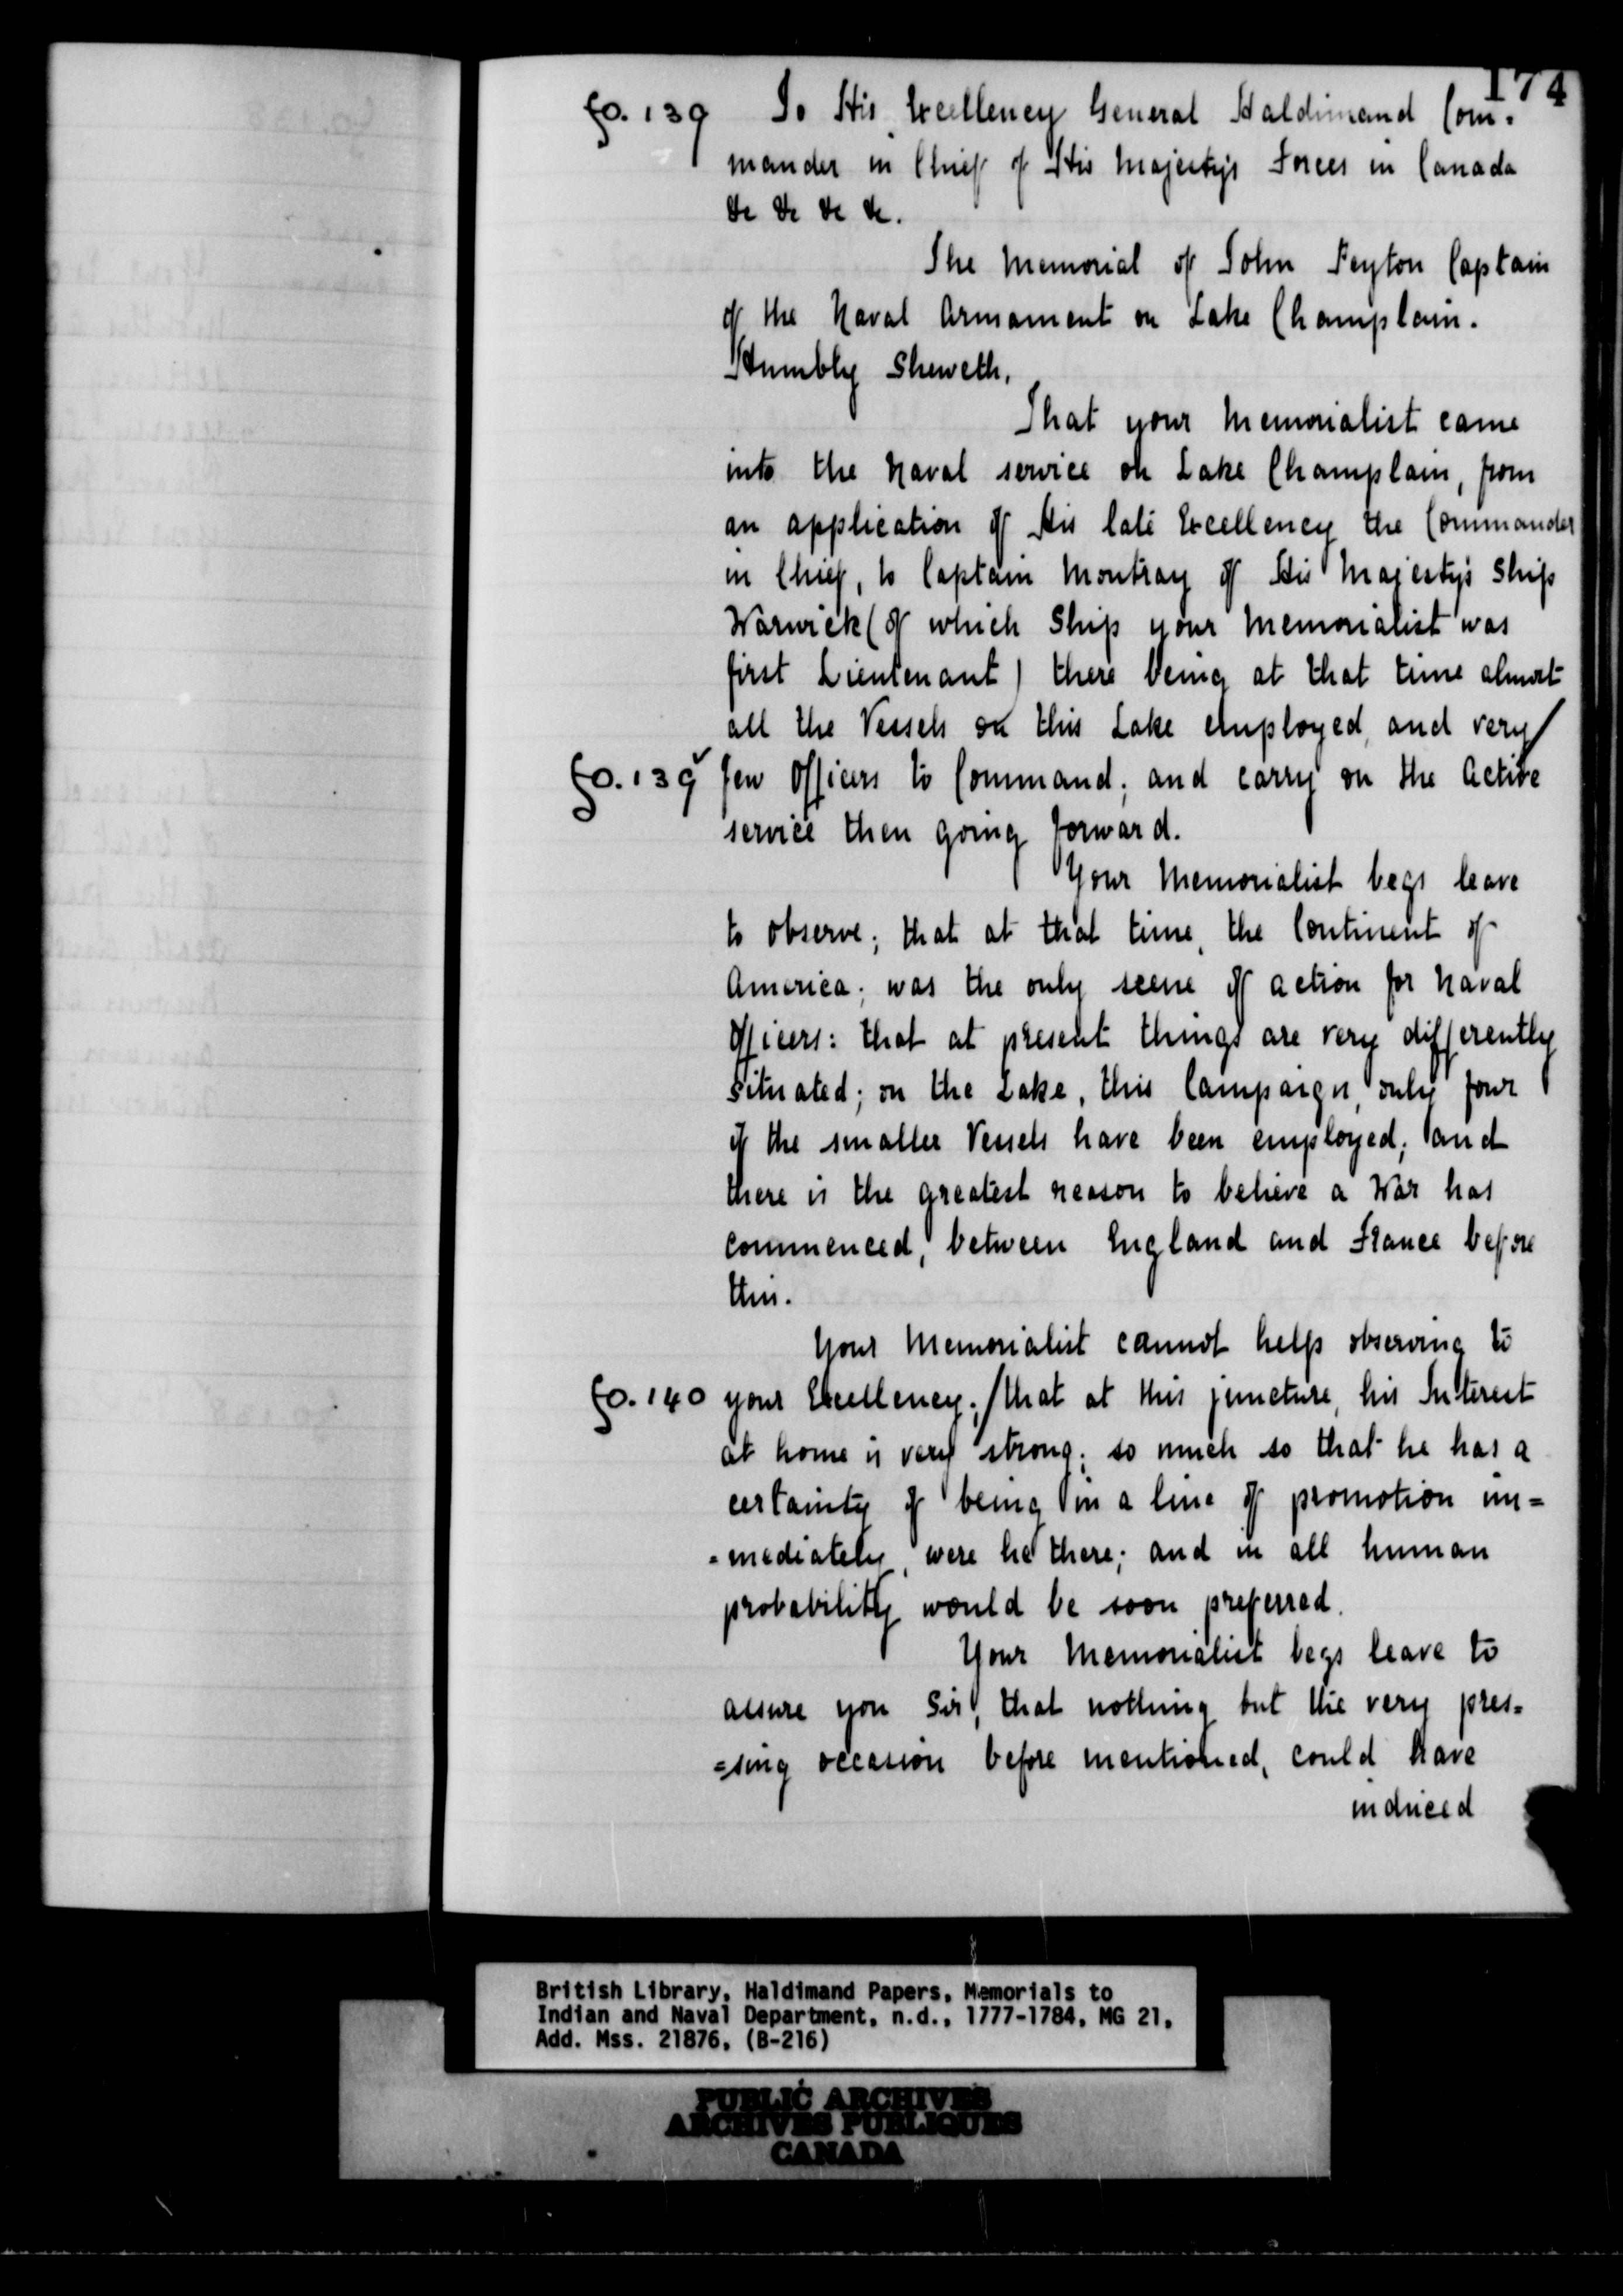 174
fo. 139 To His Excellency General Haldimand Com-
mander in Chief of His Majesty's Forces in Canada
&c &c &c &c.
The Memorial of John Peyton Captain
of the Naval Armament on Lake Champlain.
Humbly Sheweth,
That your Memorialist came
into the Naval service on Lake Champlain, from
an application of His late Excellency the Commander
in Chief, to Captain Montray of His Majesty's Ship
Warwick (of which Ship your Memorialist was
first Lieutenant) there being at that time almost
all the Vessels on this Lake employed, and very/
fo. 139v few Officers to Command; and carry on the Active
service then going forward.
Your Memorialist begs leave
to observe; that at that time, the Continent of
America; was the only scene of action for Naval
Officers: that at present things are very differently
situated; on the Lake, this Campaign, only four
of the smaller Vessels have been employed; and
there is the greatest reason to believe a War has
commenced, between England and France before
this.
Your Memorialist cannot help observing to
fo. 140 your Excellency;/that at this juncture, his Interest
at home is very strong; so much so that he has a
certainty of being in a line of promotion im=
=mediately, were he there; and in all human
probability would be soon preferred.
Your Memorialist begs leave to
assure you Sir, that nothing but the very pres=
=sing occasion before mentioned, could have
induced
British Library, Haldimand Papers, Memorials to
Indian and Naval Department, n.d., 1777-1784, MG 21,
Add. Mss. 21876, (B-216)
PUBLIC ARCHIVES
ARCHIVES PUBLIQUES
CANADA